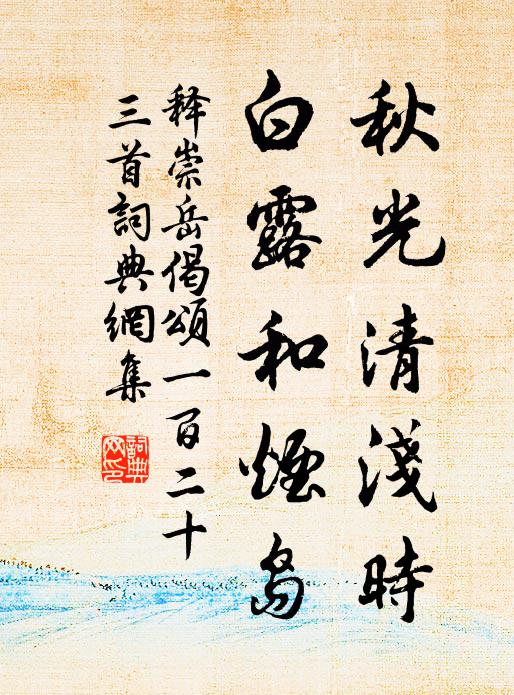 秋光清淺時
白露和煙島
释崇岳偈頌一百二十
三首詞典網集
詞典網印